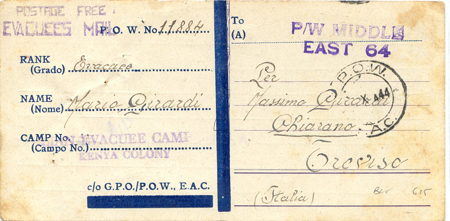 POSTAGE FREE
EVACUEES MAIL
P. O. W. No. 11884
RANK
(Grado) Evacuee
NAME
(Nome) Mario Girardi
CAMP No.
(Campo No.)
EVACUEE CAMP
KENYA COLONY
c/o G.P.O./P.O.W., E.A.C.
To
(A)
P/W MIDDLE
EAST 64
Per
Massimo
Chiarano
Treviso
(Italia)
P.O.W.
A.C.